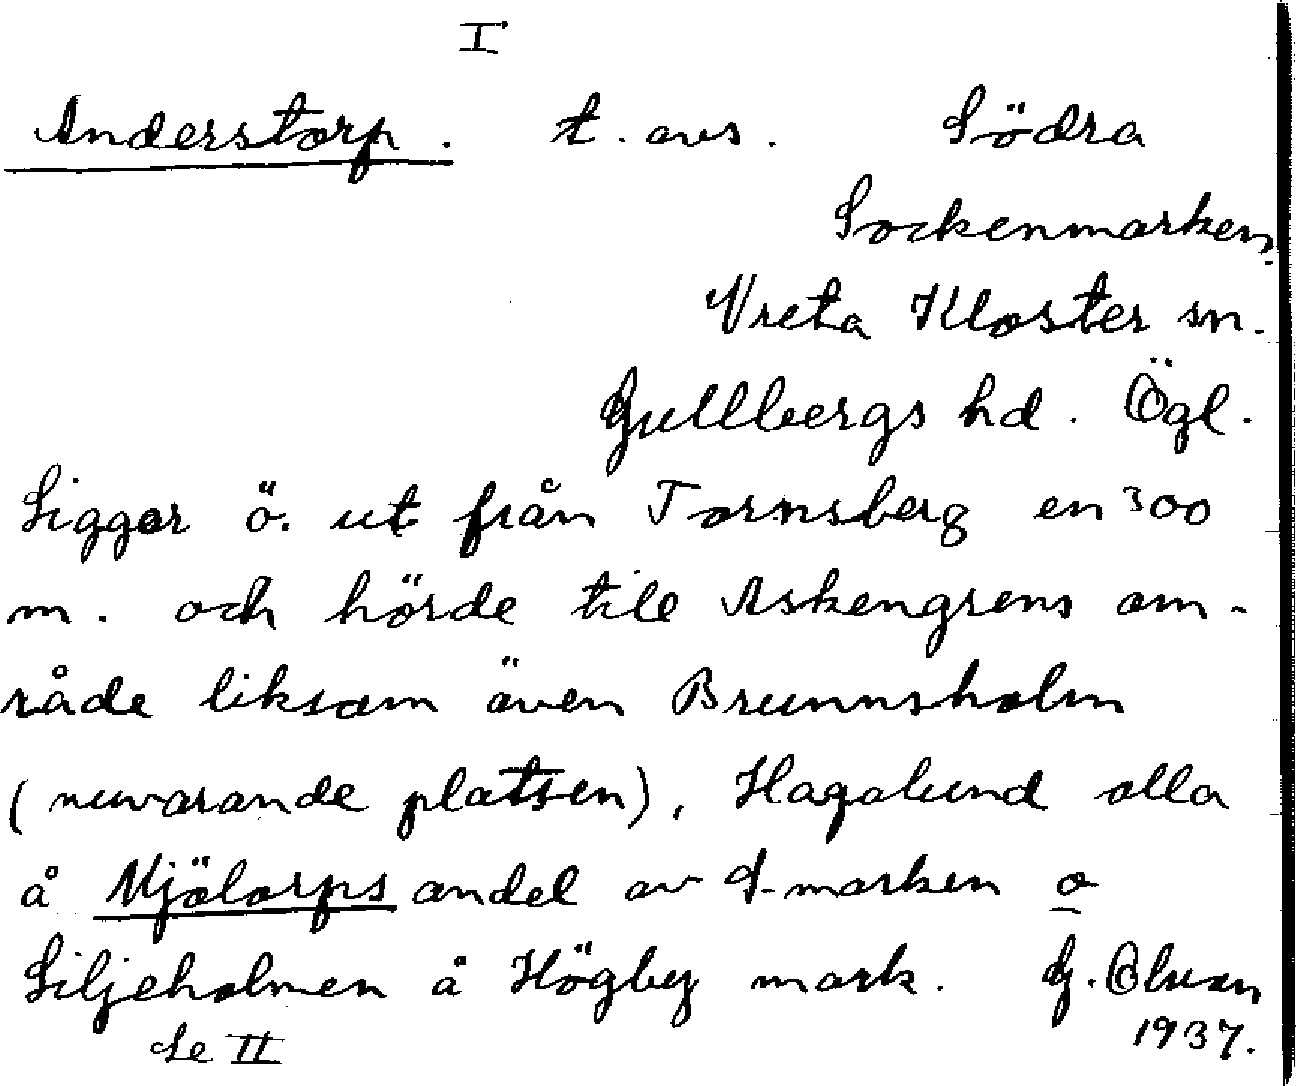 I
Anderstorp. t. avs. Södra
Sockenmarken.
Vreta Kloster sn.
Gullbergs hd. Ögl.
Ligger ö. ut från Tornsberg en 300
m. och hörde till Askengrens om-
råde liksom även Brunnsholm
(nuvarande platsen), Hagalund alla
å Mjölorps andel av S-marken o
Liljeholmen å Högby mark. G. Olsson
1937.
Se II